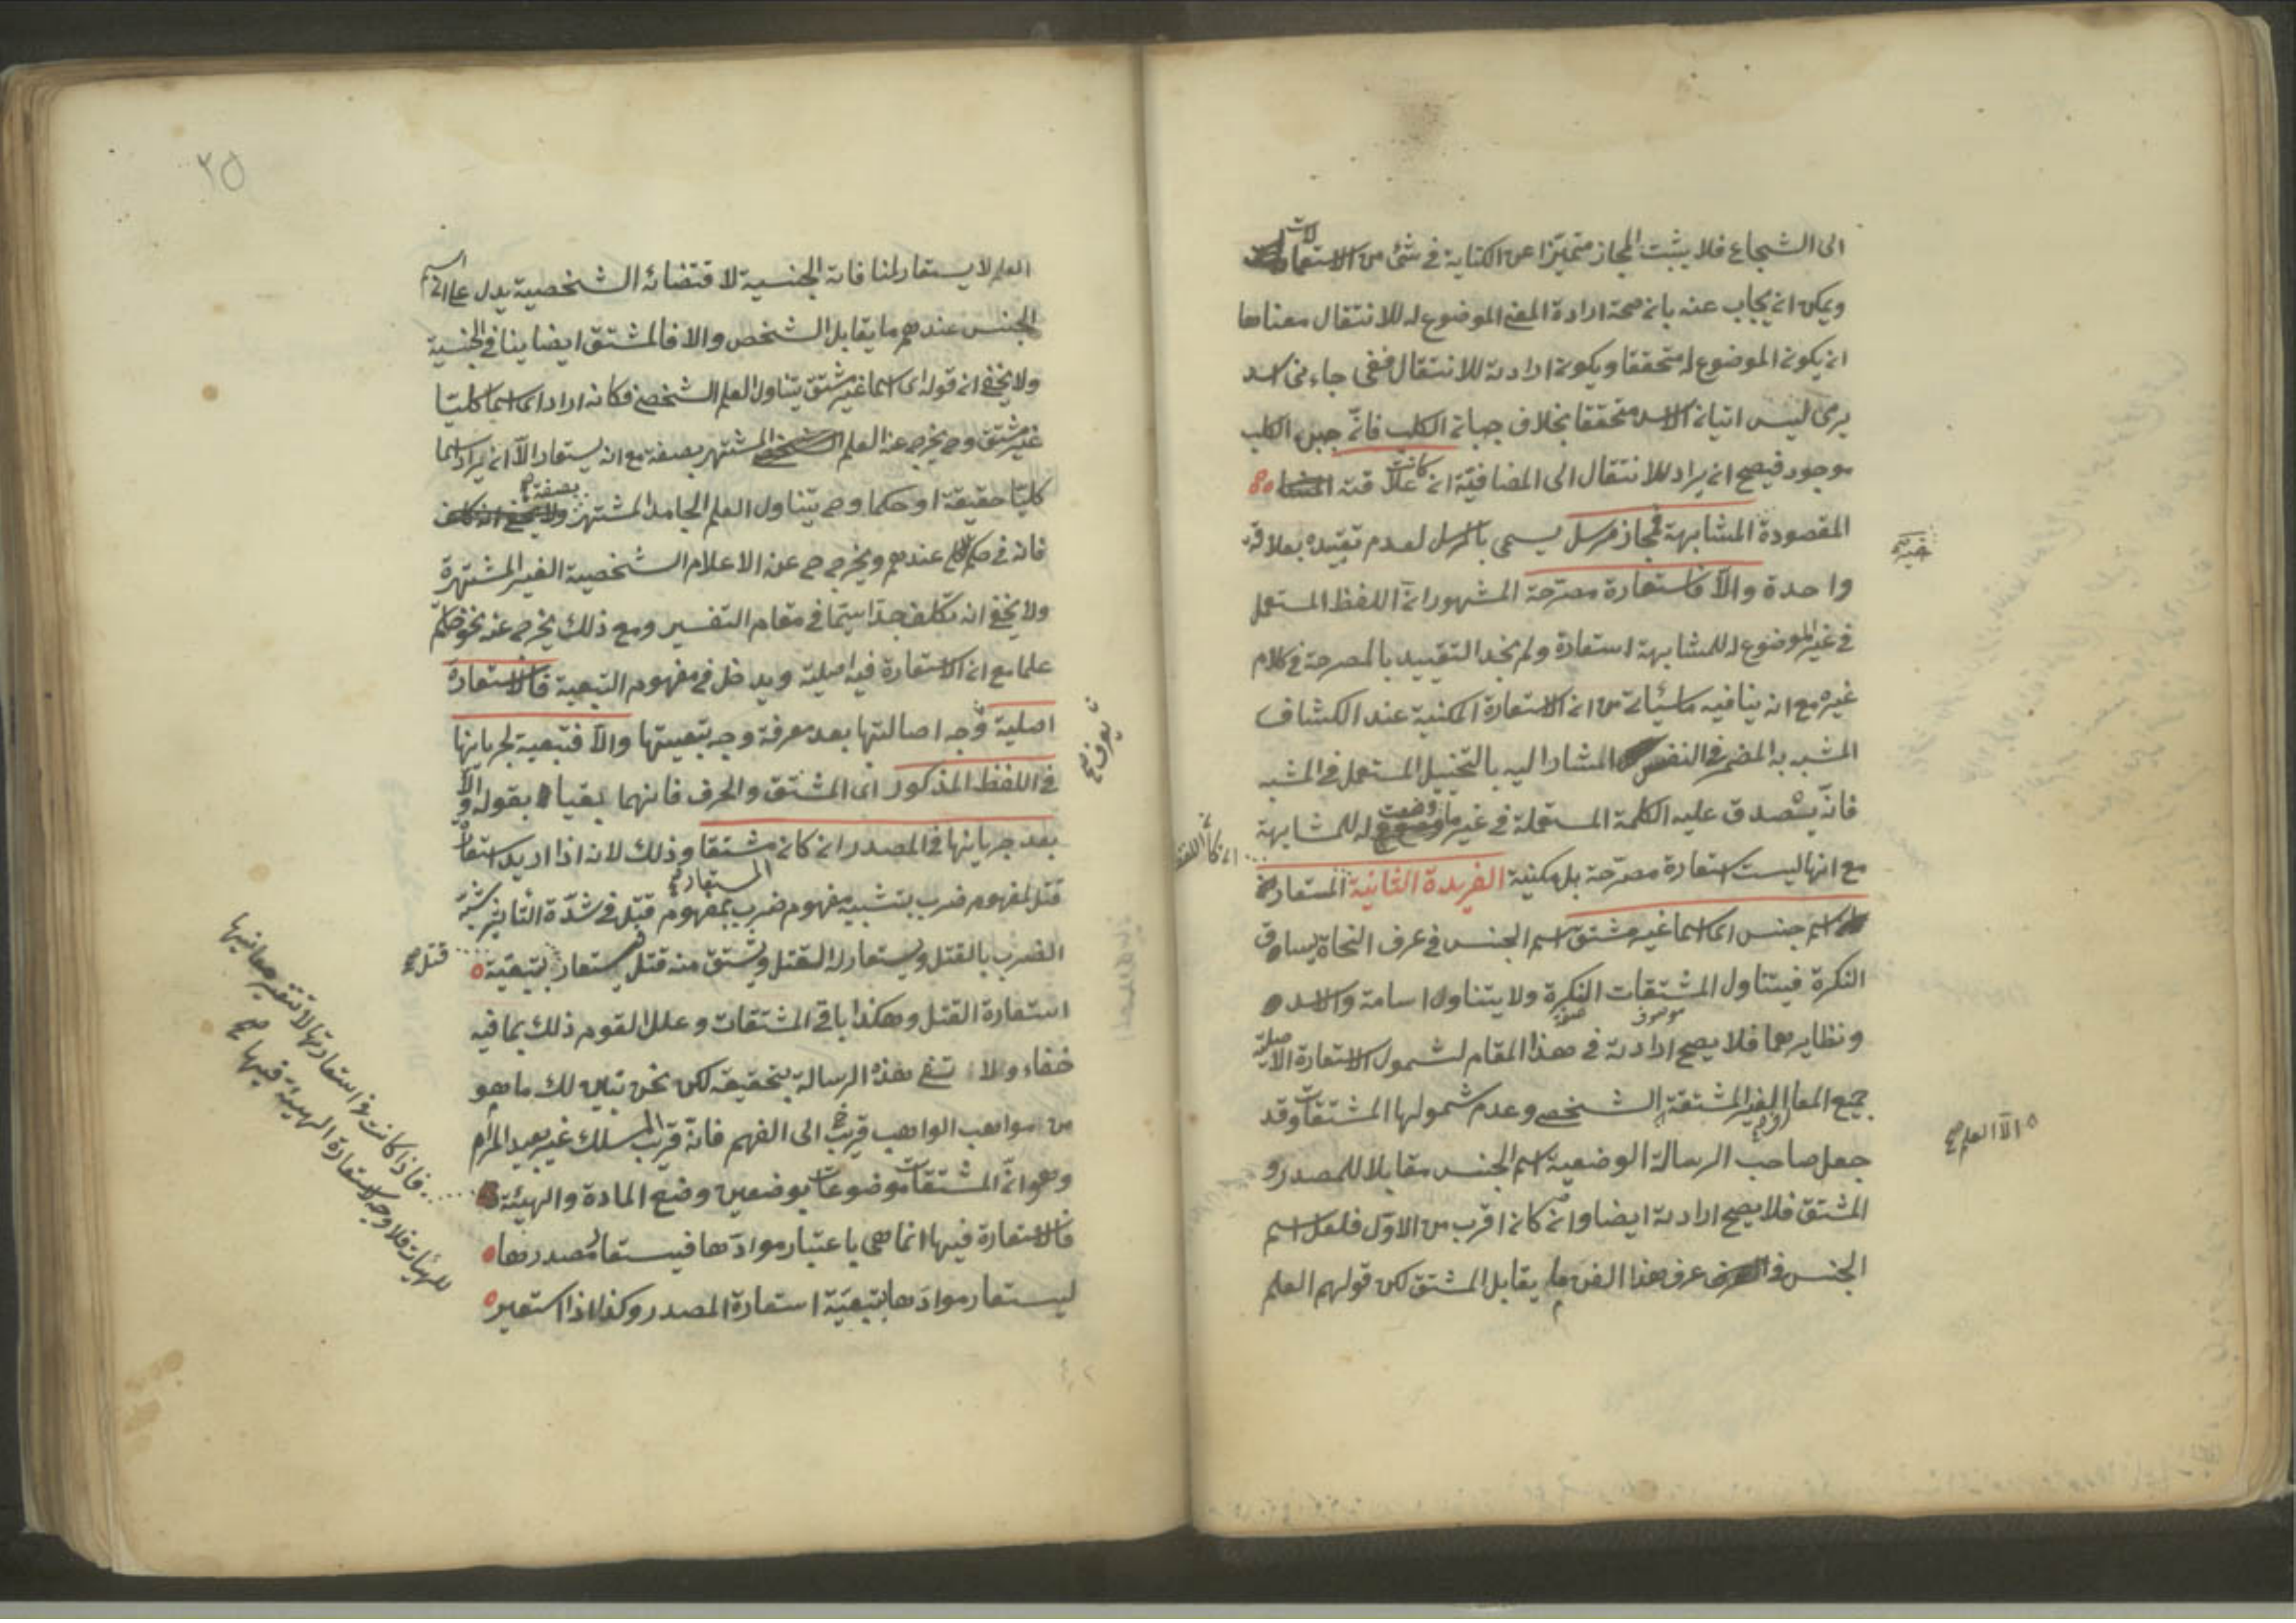 الى الشجاع فلا يثبت المجاز متميزا عن الكناية في شئ من الاستعارات
ويمكن ان يجاب عنه بان صحة ارادة المعنى الموضوع له للانتقال معناها
ان يكون الموضوع له متحققا ويكون ارادته للانتقال ففى جاءنى اسد
يرمى ليس اتيان الاسد متحققا بخلاف جبان الكلب فانّ جبن الكلب
موجود فيصح ان يراد للانتقال الى المضافية ان كانت علاقته
المقصودة المشابهة فمجاز مرسل يسمى بالمرسل لعدم تقييده بعلاقة
واحدة والّا فاستعارة مصرّحة المشهور انّ اللفظ المستعمل
في غير الموضوع له للمشابهة استعارة ولم نجد التقييد بالمصرحة في كلام
غيره مع انه ينافيه ما سيأتى من ان الاستعارة المكنية عند الكشاف
المشبه به المضمر في النفس المشار اليه بالتخييل المستعمل في المشبه
فانّه يصدق عليه الكلمة المستعملة في غير ما وضعت له للمشابهة
مع انها ليست استعارة مصرّحة بل مكنية الفريدة الثانية المستعار
اسم جنس اى اسما غير مشتق اسم الجنس في عرف النحاة يساوق
النكرة فيتناول المشتقات النكرة ولا يتناول اسامة والاسد
موصوف صفة
ونظايرهما فلا يصح ارادته في هذا المقام لشمول الاستعارة الاصلية
جميع المعارف الغير المشتقة الشخصى وعدم شمولها المشتقات وقد
جعل صاحب الرسالة الوضعية اسم الجنس مقابلا للمصدر و
المشتق فلا يصح ارادته ايضا وان كان اقرب من الاوّل فلعل اسم
الجنس في عرف هذا الفن ما يقابل المشتق لكن قولهم العلم
ان كان اللفظ
الّا العلم صح
٢٥
العلم لا يستعار لمنافاته الجنسية لاقتضائه الشخصية يدل على ان اسم
الجنس عندهم ما يقابل الشخص والا فالمشتق ايضا ينافي الجنسية
ولا يخفى ان قوله اى اسما غير مشتق يتناول العلم الشخصى فكانه اراد اى اسما كليّا
غير مشتق وح يخرج عنه العلم الشخصى المشتهر بصفة مع انه يستعار الّا ان يراد اسما
كليّا حقيقة او حكما وح يتناول العلم الجامد المشتهر بصفة
فانه في حكم الكلى عندهم ويخرج ح عنه الاعلام الشخصية الغير المشتهرة
ولا يخفى انه تكلف جدا سيّما في مقام التفسير ومع ذلك يخرج عنه نحو حاتم
علما مع ان الاستعارة فيه اصلية ويدخل في مفهوم التبعية فالاستعارة
اصلية وجه اصالتها بعد معرفة وجه تبعيتها والّا فتبعية لجريانها
في اللفظ المذكور اى المشتق والحرف فانهما بقيا بقوله والّا
بعد جريانها في المصدر ان كان مشتقا وذلك لانه اذا اريد استعارة
قتل لمفهوم ضرب بتشبيه مفهوم ضرب بمفهوم قتل في شدّة التأثير شبّه
المستعار
الضرب بالقتل ويستعار له القتل ويشتق منه قتل فيستعار بتبعيّة
استعارة القتل وهكذا باقى المشتقات وعلل القوم ذلك بما فيه
خفاء ولا تفى هذه الرسالة بتحقيقه لكن نحن نبين لك ما هو
من مواهب الواهب قريب الى الفهم فانه قريب المسلك غير بعيد المرام
وهو انّ المشتقات موضوعات بوضعين وضع المادة والهيئة
فالاستعارة فيها انما هى باعتبار موادّها فيستعار مصدرها
ليستعار موادّها بتبعيّة استعارة المصدر وكذا اذا استعير
يعرف صح
قتل صح
فاذا كانت في استعارتها لا تتغير معانيها
للهيئات فلا وجه لاستعارة الهيئة فيها صح